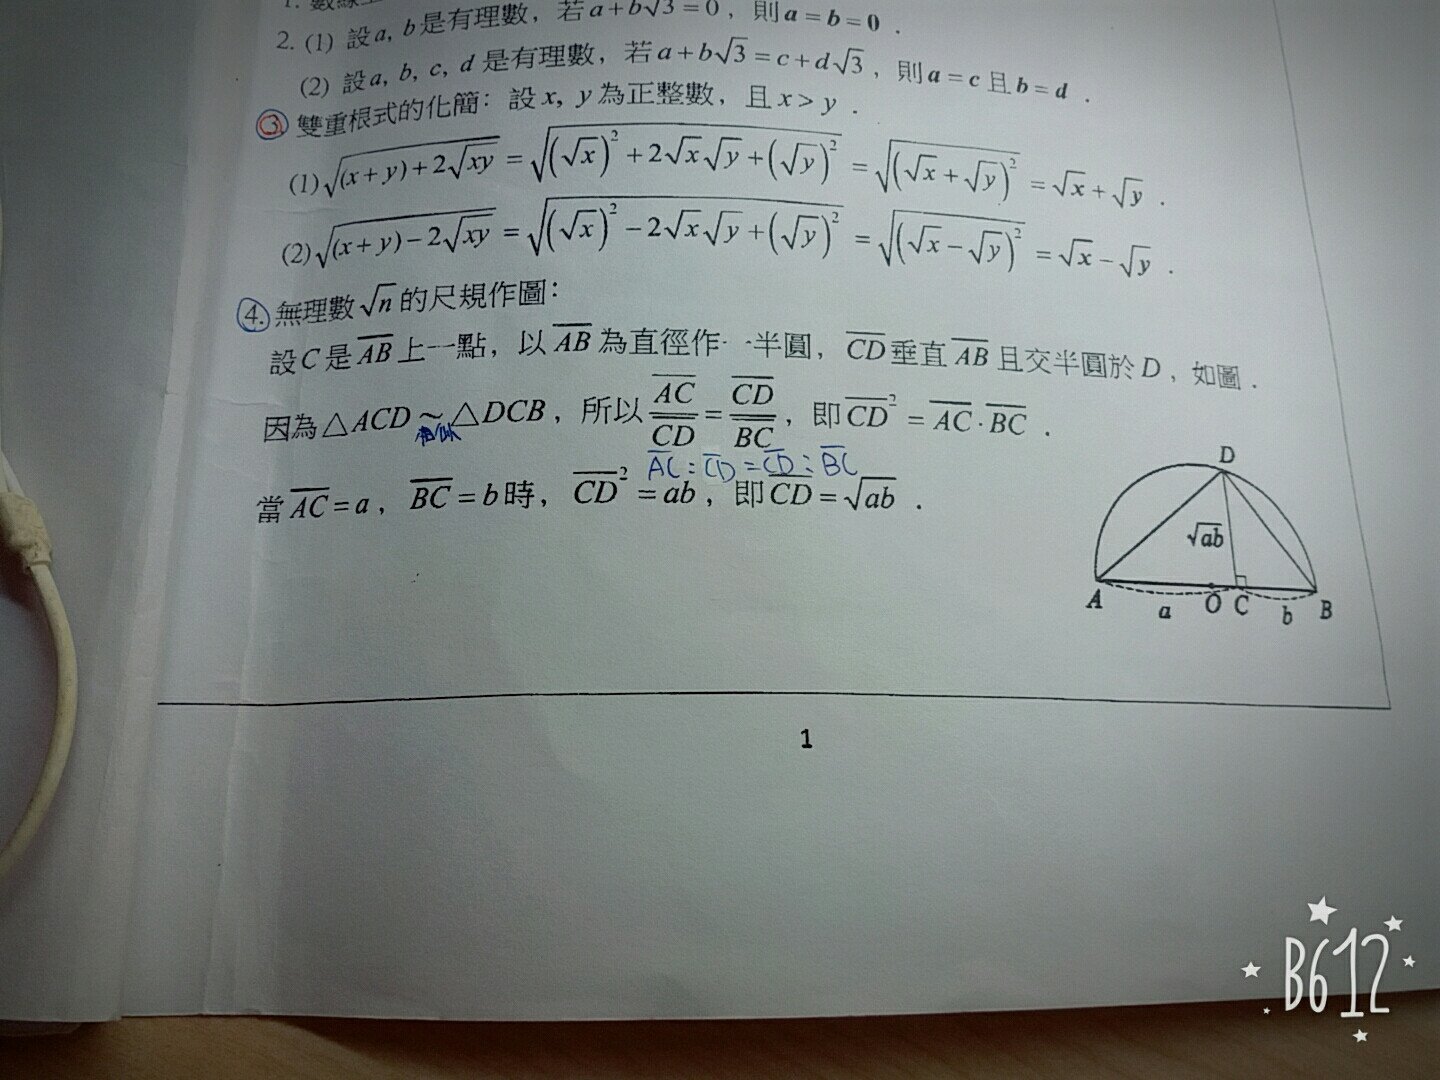 1. 數線
2. (1) 設a, b是有理數，若a+b√3=0，則a=b=0．
(2) 設a, b, c, d 是有理數，若a+b√3=c+d√3，則a=c且b=d．
3. 雙重根式的化簡：設x, y為正整數，且x>y．
(1)√((x+y)+2√(xy)) = √((√x)²+2√x√y+(√y)²) = √((√x+√y)²) = √x+√y．
(2)√((x+y)−2√(xy)) = √((√x)²−2√x√y+(√y)²) = √((√x−√y)²) = √x−√y．
4. 無理數√n的尺規作圖：
設C是A̅B̅上一點，以A̅B̅為直徑作一半圓，C̅D̅垂直A̅B̅且交半圓於D，如圖．
因為△ACD～△DCB，所以A̅C̅/C̅D̅=C̅D̅/B̅C̅，即C̅D̅²=A̅C̅·B̅C̅．
相似
A̅C̅:C̅D̅=C̅D̅:B̅C̅
當A̅C̅=a，B̅C̅=b時，C̅D̅²=ab，即C̅D̅=√(ab)．
D
√(ab)
A a O C b B
1
B612